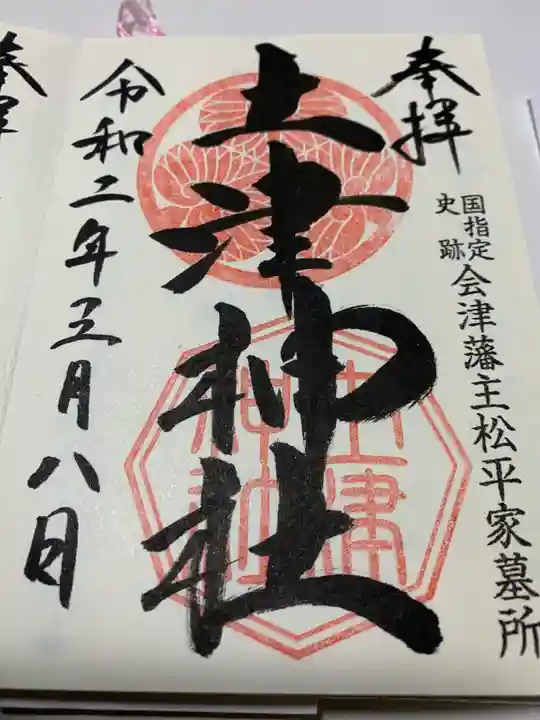 奉拝
国指定史跡 会津藩主松平家墓所
土津神社
土津神社
令和二年三月八日
奉拝